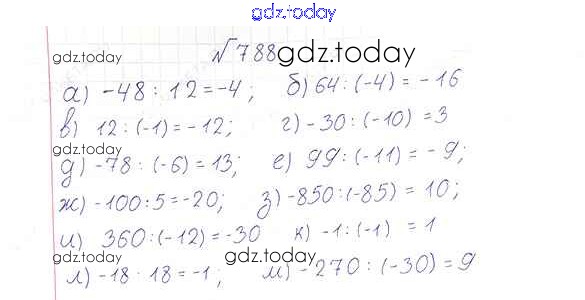 gdz.today
№788 gdz.today
gdz.today
а) -48 : 12 = -4; б) 64 : (-4) = -16
в) 12 : (-1) = -12; г) -30 : (-10) = 3
gdz.today
д) -78 : (-6) = 13; е) 99 : (-11) = -9;
ж) -100 : 5 = -20; з) -850 : (-85) = 10;
и) 360 : (-12) = -30 к) -1 : (-1) = 1
gdz.today gdz.today
л) -18 : 18 = -1; м) -270 : (-30) = 9